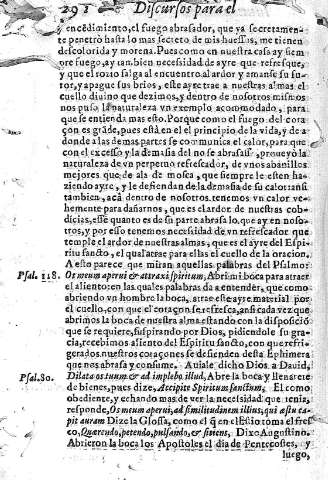 291 Discursos para el
y encēdimiento, el fuego abrasador, que ya secretamen-
te penetrò hasta lo mas secreto de mis huessos, me tienen
descolorida y morena. Pues como en nuestra casa ay siem
pre fuego, ay tanbien necesidad de ayre que refresque,
y que el rozio salga al encuentro al ardor y amanse su fu-
ror, y apague sus brios, este ayre trae a nuestras almas el
cuello diuino que dezimos, y dentro de nosotros mismos
nos puso la naturaleza vn exemplo acomodado, para
que se entienda mas esto. Porque como el fuego del cora
çon es grāde, pues està en el el principio de la vida, y de a
donde a las demas partes se comunica el calor, para que
con el excesso y la demasia del no se abrasasse, proueyò la
naturaleza de vn perpetuo refrescador, de vnos abanillos
mejores que de ala de mosca, que siempre le estē ha-
ziendo ayre, y le defiendan de la demasia de su calor: assi
tambien, acà dentro de nosotros, tenemos vn calor vehe-
mente para dañarnos, que es el ardor de nuestras cob-
dicias, esse quanto es de su parte abrasa lo que ay en noso-
tros, y por esso tenemos necesidad de vn refrescador que
temple el ardor de nuestras almas, que es el ayre del Espi-
ritu sancto, el qual atrae para ellas el cuello de la oracion.
A esto parece que miran aquellas palabras del Psalmo
Psal. 118. Os meum aperui & attraxi spiritum, Abrì mi boca para atraer
el aliento: en las quales palabras da a entender, que como
abriendo vn hombre la boca, atrae este ayre material por
el cuello, con que el coraçon se refresca, ansi cada vez que
abrimos la boca de nuestra alma estando con la disposiciō
que se requiere, suspirando por Dios, pidēdole su gra-
cia, recebimos aliento del Espiritu sancto, con que refri-
gerados nuestros coraçones se defienden desta Ephimera
que nos abrasa y consume. Auiale dicho Dios a Dauid,
Psal. 80. Dilata os tuum & ad implebo illud, Abre la boca y llenarete
de bienes, pues dize, Accipite Spiritum sanctum, El como
obediente, y echando mas de ver la necesidad que tenia,
responde, Os meum aperui, ad similitudinem illius, qui æstu ca-
pit auram Dize la Glossa, como el q̄ en el estio toma el fres
co, Quærendo, petendo, pulsando, & sitiens, Dize Augustino.
Abrieron la boca los Apostoles el dia de Pentecostes, y
luego,